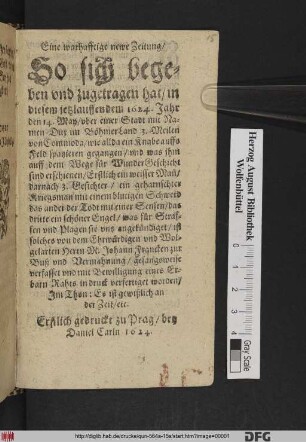 Eine warhafftige newe Zeitung/
So sich bege-
ben vnd zugetragen hat/ in
diesem jetzlauffendem 1624. Jahr
den 14. May/ vber einer Stadt mit Na-
men Dux im BöhmerLand 3. Meilen
von Commoda/ wie allda ein Knab auffs
Feld spatzieren gegangen/ vnd was jhm
auff dem Wege für Wunder Geschicht
sind erschienen/ Erstlich ein weisser Man/
darnach 3. Gesichter/ ein geharnischter
Kriegsman mit einem blutigen Schwerd
das ander der Tod mit einer Sensen/ das
dritte ein schöner Engel/ was für Straf-
fen vnd Plagen sie vns angekündiget/ ist
solches von dem Ehrwürdigen vnd Wol-
gelarten Herrn M. Johann Francken zur
Buß vnd Vermahnung/ gesangsweise
verfasset vnd mit Bewilligung eines Er-
barn Rahts in druck verfertiget worden/
Im Thon: Es ist gewißlich an
der Zeit/ etc.
Erstlich gedruckt zu Prag/ bey
Daniel Carln 1624.
Herzog August Bibliothek
Wolfenbüttel
Gray Scale
http://diglib.hab.de/drucke/qun-564a-15s/start.htm?image=00001
DFG